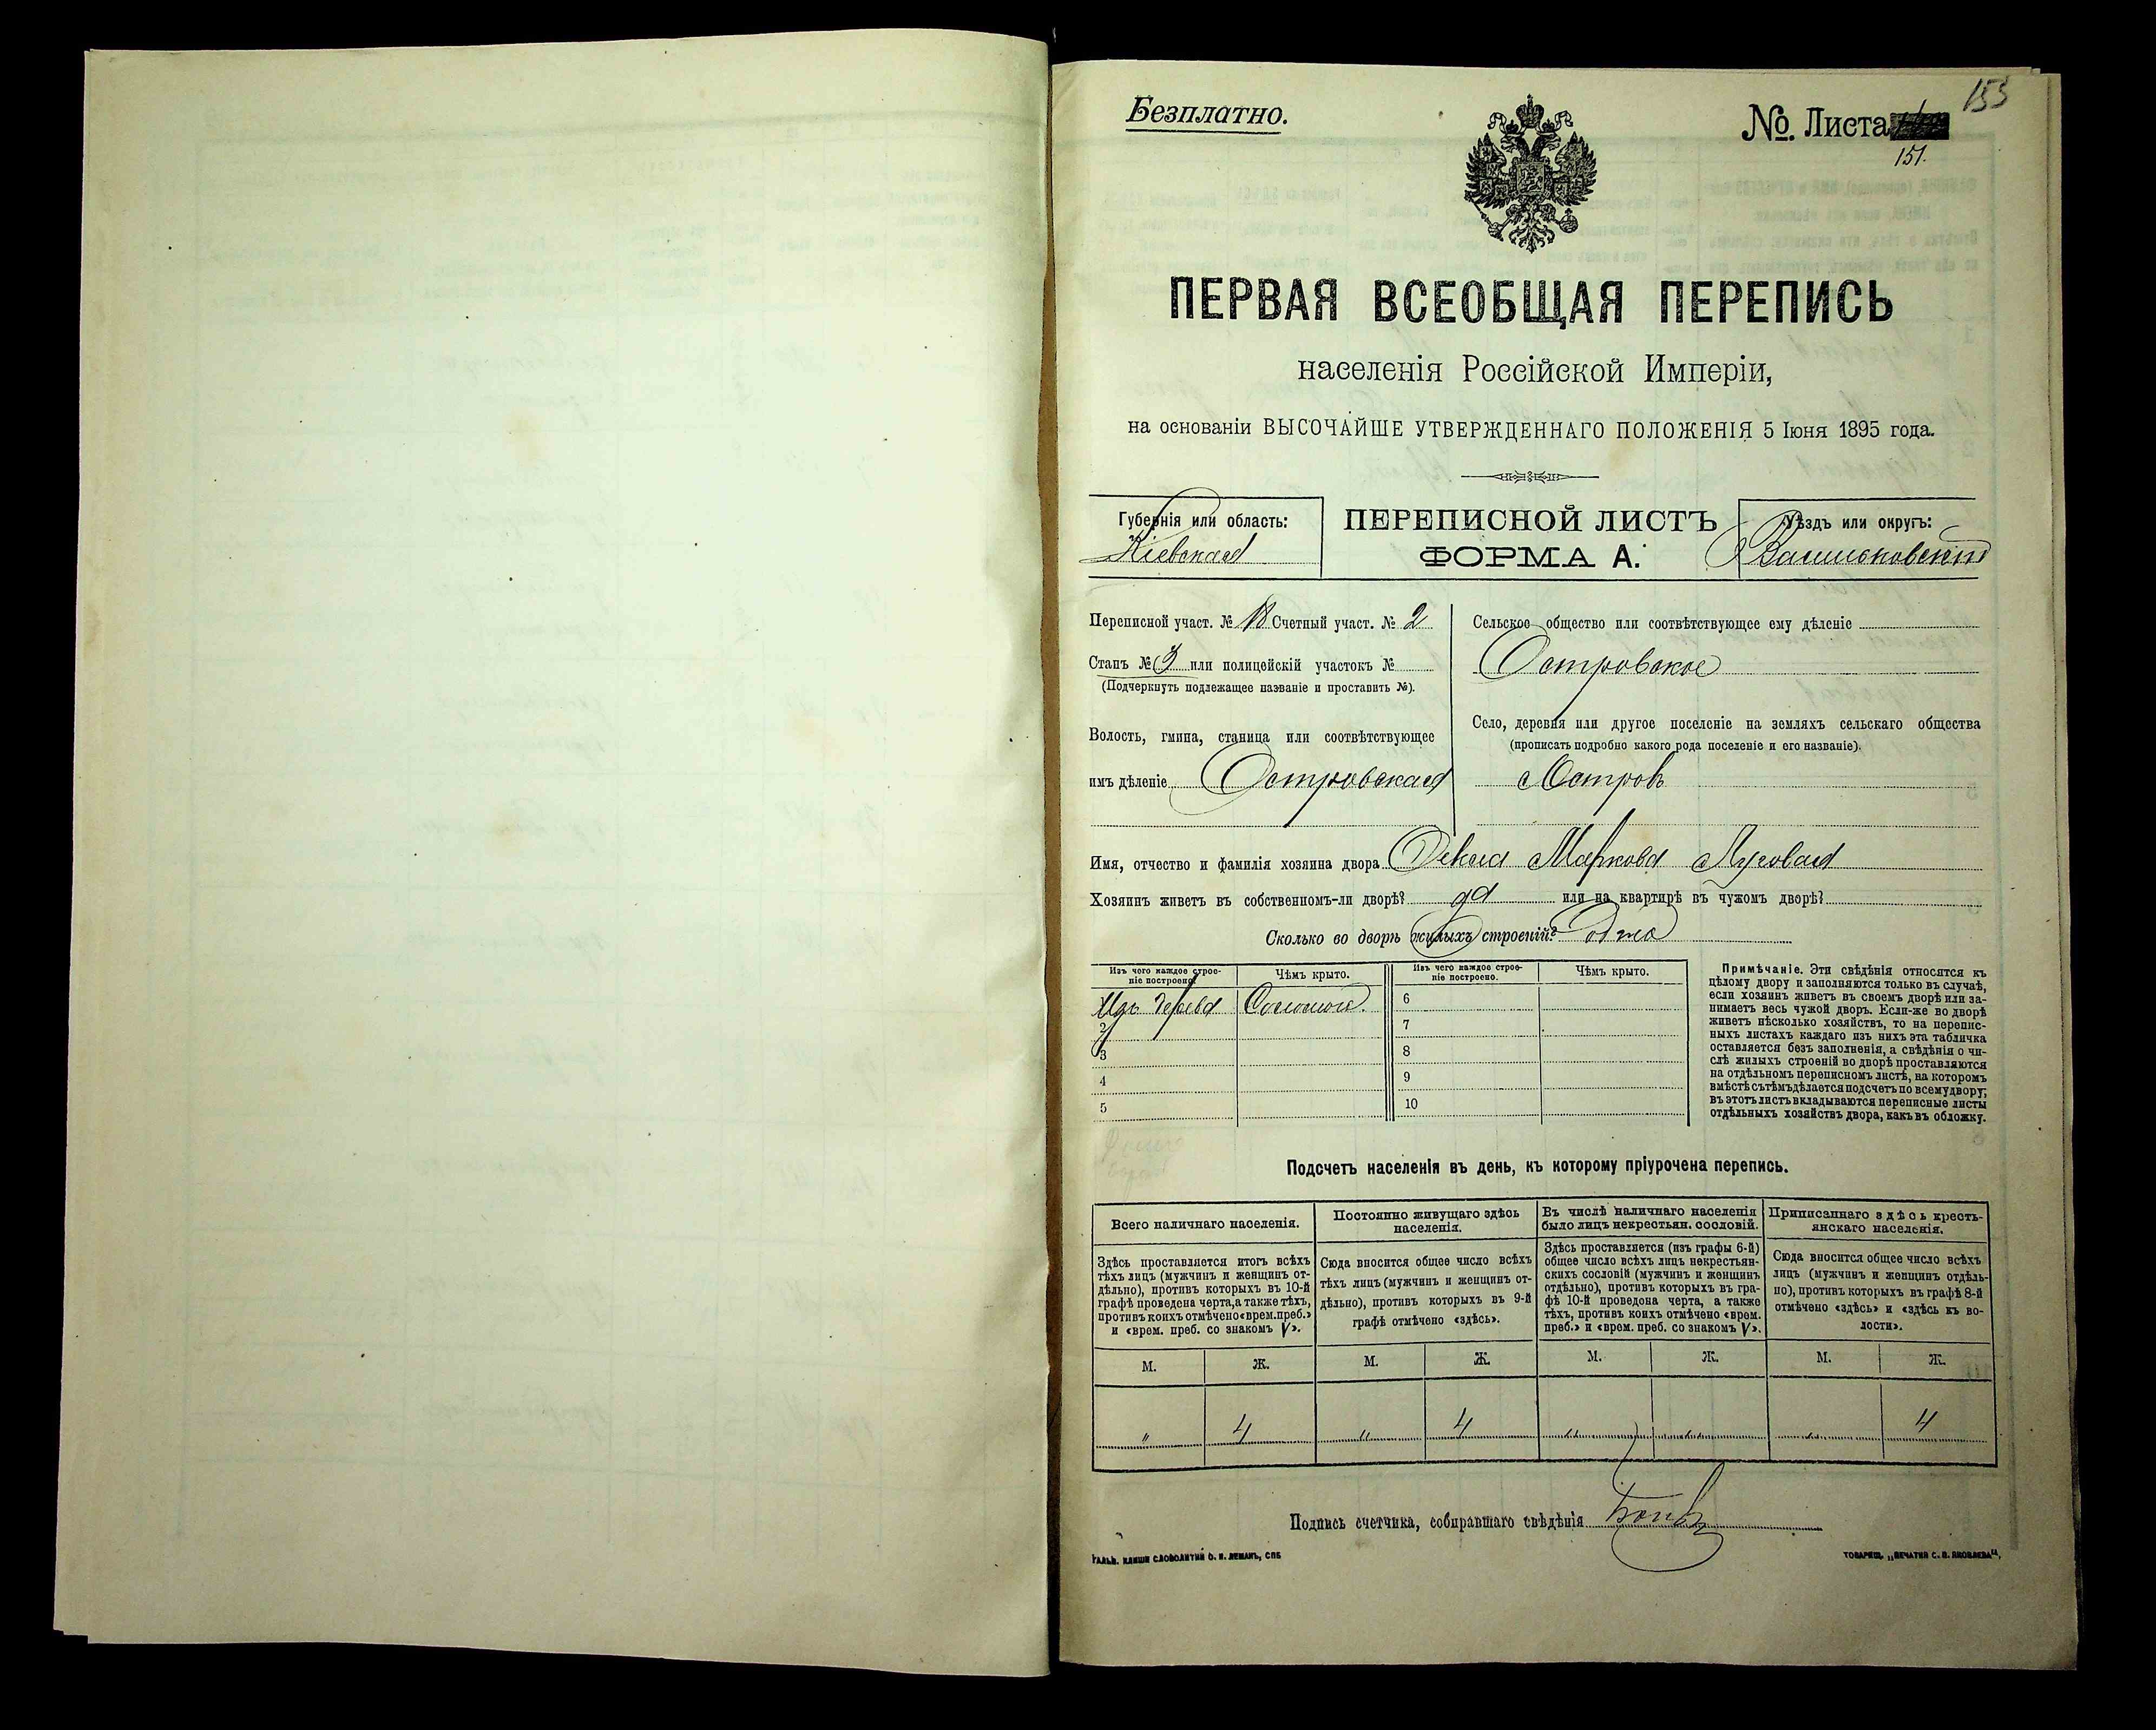 153
Безплатно.
№. Листа
151.
ПЕРВАЯ ВСЕОБЩАЯ ПЕРЕПИСЬ
населенія Россійской Имперіи,
на основаніи ВЫСОЧАЙШЕ УТВЕРЖДЕННАГО ПОЛОЖЕНІЯ 5 Іюня 1895 года.
Губернія или область:
Кіевская
ПЕРЕПИСНОЙ ЛИСТЪ
ФОРМА А.
Уѣздъ или округъ:
Васильковскій
Переписной участ. № Счетный участ. № 2
Станъ № 3 или полицейскій участокъ №
(Подчеркнуть подлежащее названіе и проставить №).
Волость, гмина, станица или соотвѣтствующее
имъ дѣленіе Островская
Сельское общество или соотвѣтствующее ему дѣленіе
Островское
Село, деревня или другое поселеніе на земляхъ сельскаго общества
(прописать подробно какого рода поселеніе и его названіе).
Островъ
Имя, отчество и фамилія хозяина двора Маркова Луговая
Хозяинъ живетъ въ собственномъ-ли дворѣ? да или на квартирѣ въ чужомъ дворѣ?
Сколько во дворѣ жилыхъ строеній? одно
Изъ чего каждое строе-
ніе построено.
Чѣмъ крыто.
Изъ дерева Соломою.
2
3
4
5
Изъ чего каждое строе-
ніе построено.
Чѣмъ крыто.
6
7
8
9
10
Примѣчаніе. Эти свѣдѣнія относятся къ
цѣлому двору и заполняются только въ случаѣ,
если хозяинъ живетъ въ своемъ дворѣ или за-
нимаетъ весь чужой дворъ. Если-же во дворѣ
живетъ нѣсколько хозяйствъ, то на перепис-
ныхъ листахъ каждаго изъ нихъ эта табличка
оставляется безъ заполненія, а свѣдѣнія о чи-
слѣ жилыхъ строеній во дворѣ проставляются
на отдѣльномъ переписномъ листѣ, на которомъ
вмѣстѣ съ тѣмъ дѣлается подсчетъ по всему двору;
въ этотъ листъ вкладываются переписные листы
отдѣльныхъ хозяйствъ двора, какъ въ обложку.
Подсчетъ населенія въ день, къ которому пріурочена перепись.
Всего наличнаго населенія.
Здѣсь проставляется итогъ всѣхъ
тѣхъ лицъ (мужчинъ и женщинъ от-
дѣльно), противъ которыхъ въ 10-й
графѣ проведена черта, а также тѣхъ,
противъ коихъ отмѣчено «врем. преб.»
и «врем. преб. со знакомъ V».
М. Ж.
" 4
Постоянно живущаго здѣсь
населенія.
Сюда вносится общее число всѣхъ
тѣхъ лицъ (мужчинъ и женщинъ от-
дѣльно), противъ которыхъ въ 9-й
графѣ отмѣчено «здѣсь».
М. Ж.
" 4
Въ числѣ наличнаго населенія
было лицъ некрестьян. сословій.
Здѣсь проставляется (изъ графы 6-й)
общее число всѣхъ лицъ некрестьян-
скихъ сословій (мужчинъ и женщинъ
отдѣльно), противъ которыхъ въ гра-
фѣ 10-й проведена черта, а также
тѣхъ, противъ коихъ отмѣчено «врем.
преб.» и «врем. преб. со знакомъ V».
М. Ж.
" "
Приписаннаго здѣсь кресть-
янскаго населенія.
Сюда вносится общее число всѣхъ
лицъ (мужчинъ и женщинъ отдѣль-
но), противъ которыхъ въ графѣ 8-й
отмѣчено «здѣсь» и «здѣсь въ во-
лости».
М. Ж.
" 4
Подпись счетчика, собиравшаго свѣдѣнія
ГАЛЬВ. КЛИШЕ СЛОВОЛИТНИ О. И. ЛЕМАНЪ, СПБ
ТОВАРИЩ. „ПЕЧАТНЯ С. П. ЯКОВЛЕВА“,